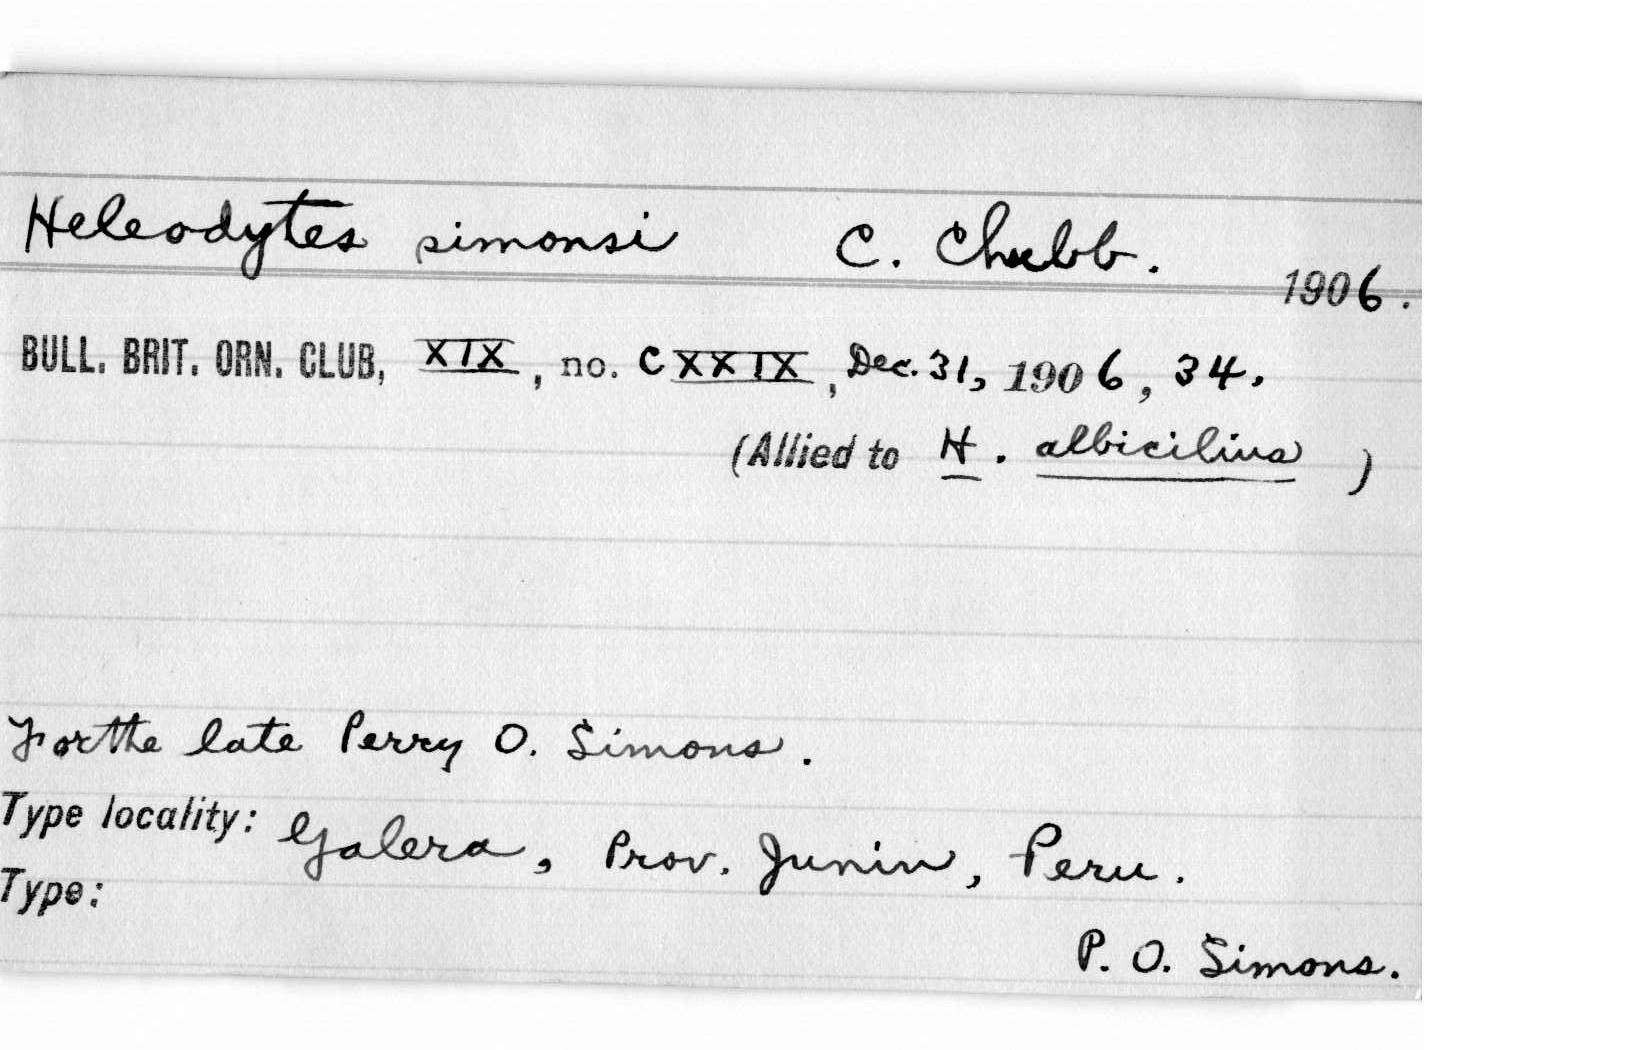 Heleodytes simonsi C. Chubb. 1906.
BULL. BRIT. ORN. CLUB, XIX, no. CXXIX, Dec. 31, 1906, 34.
(Allied to H. albicilius)
For the late Perry O. Simons.
Type locality: Galera, Prov. Junin, Peru.
Type:
P. O. Simons.